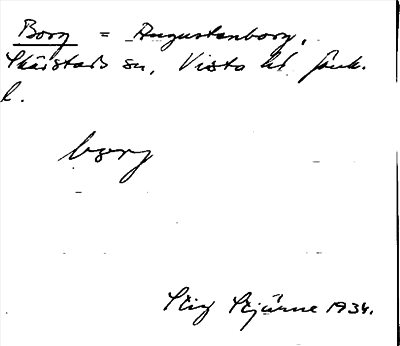 Borg = Augustenborg,
Skärstads sn, Vista hd Jönk.
l.
borg
Stig Stjärne 1934.